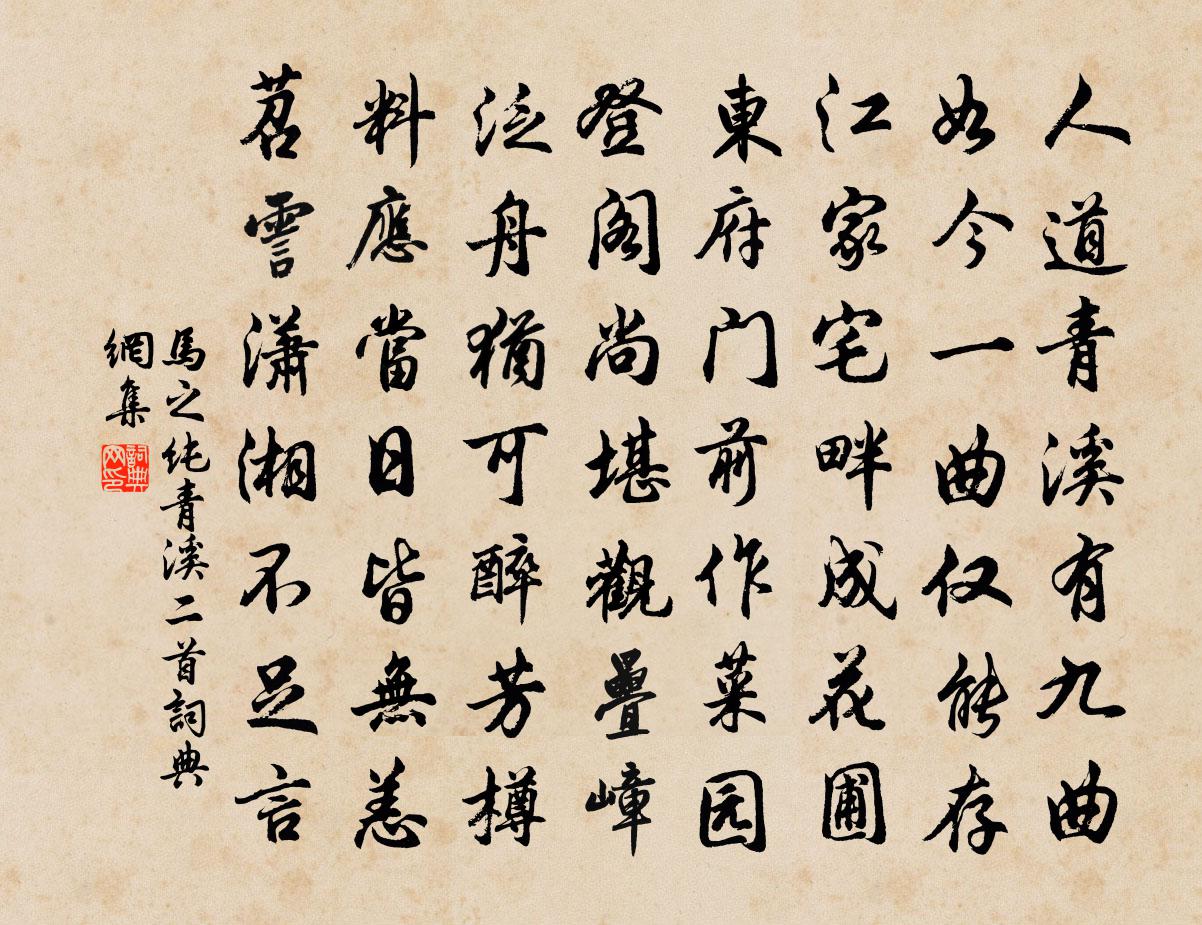 人道青溪有九曲
如今一曲仅能存
江家宅畔成花圃
東府门前作菜园
登阁尚堪觀疊嶂
泛舟猶可醉芳樽
料應當日皆無恙
苕霅瀟湘不足言
馬之纯青溪二首詞典
網集
詞典
网印